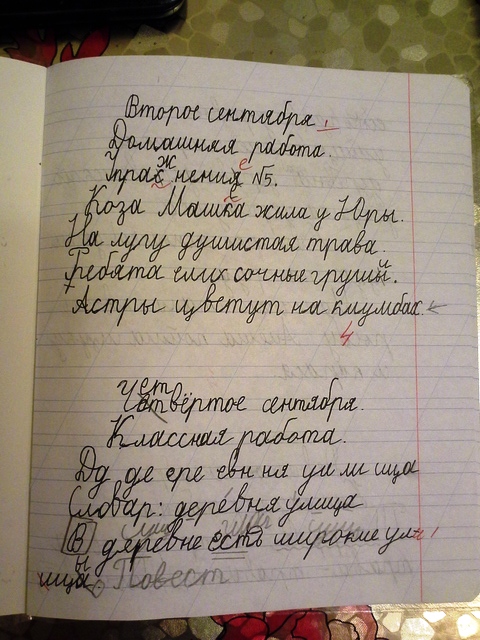 Второе сентября.
Домашняя работа.
Упражнения №5.
Коза Машка жила у Юры.
На лугу душистая трава.
Ребята ели сочные груши.
Астры цветут на клумбах.
4
Четвёртое сентября.
Классная работа.
Дд де ере евн ня ул ли ица
Словар: деревня улица
В деревне есть широкие ул
ицы. Повест